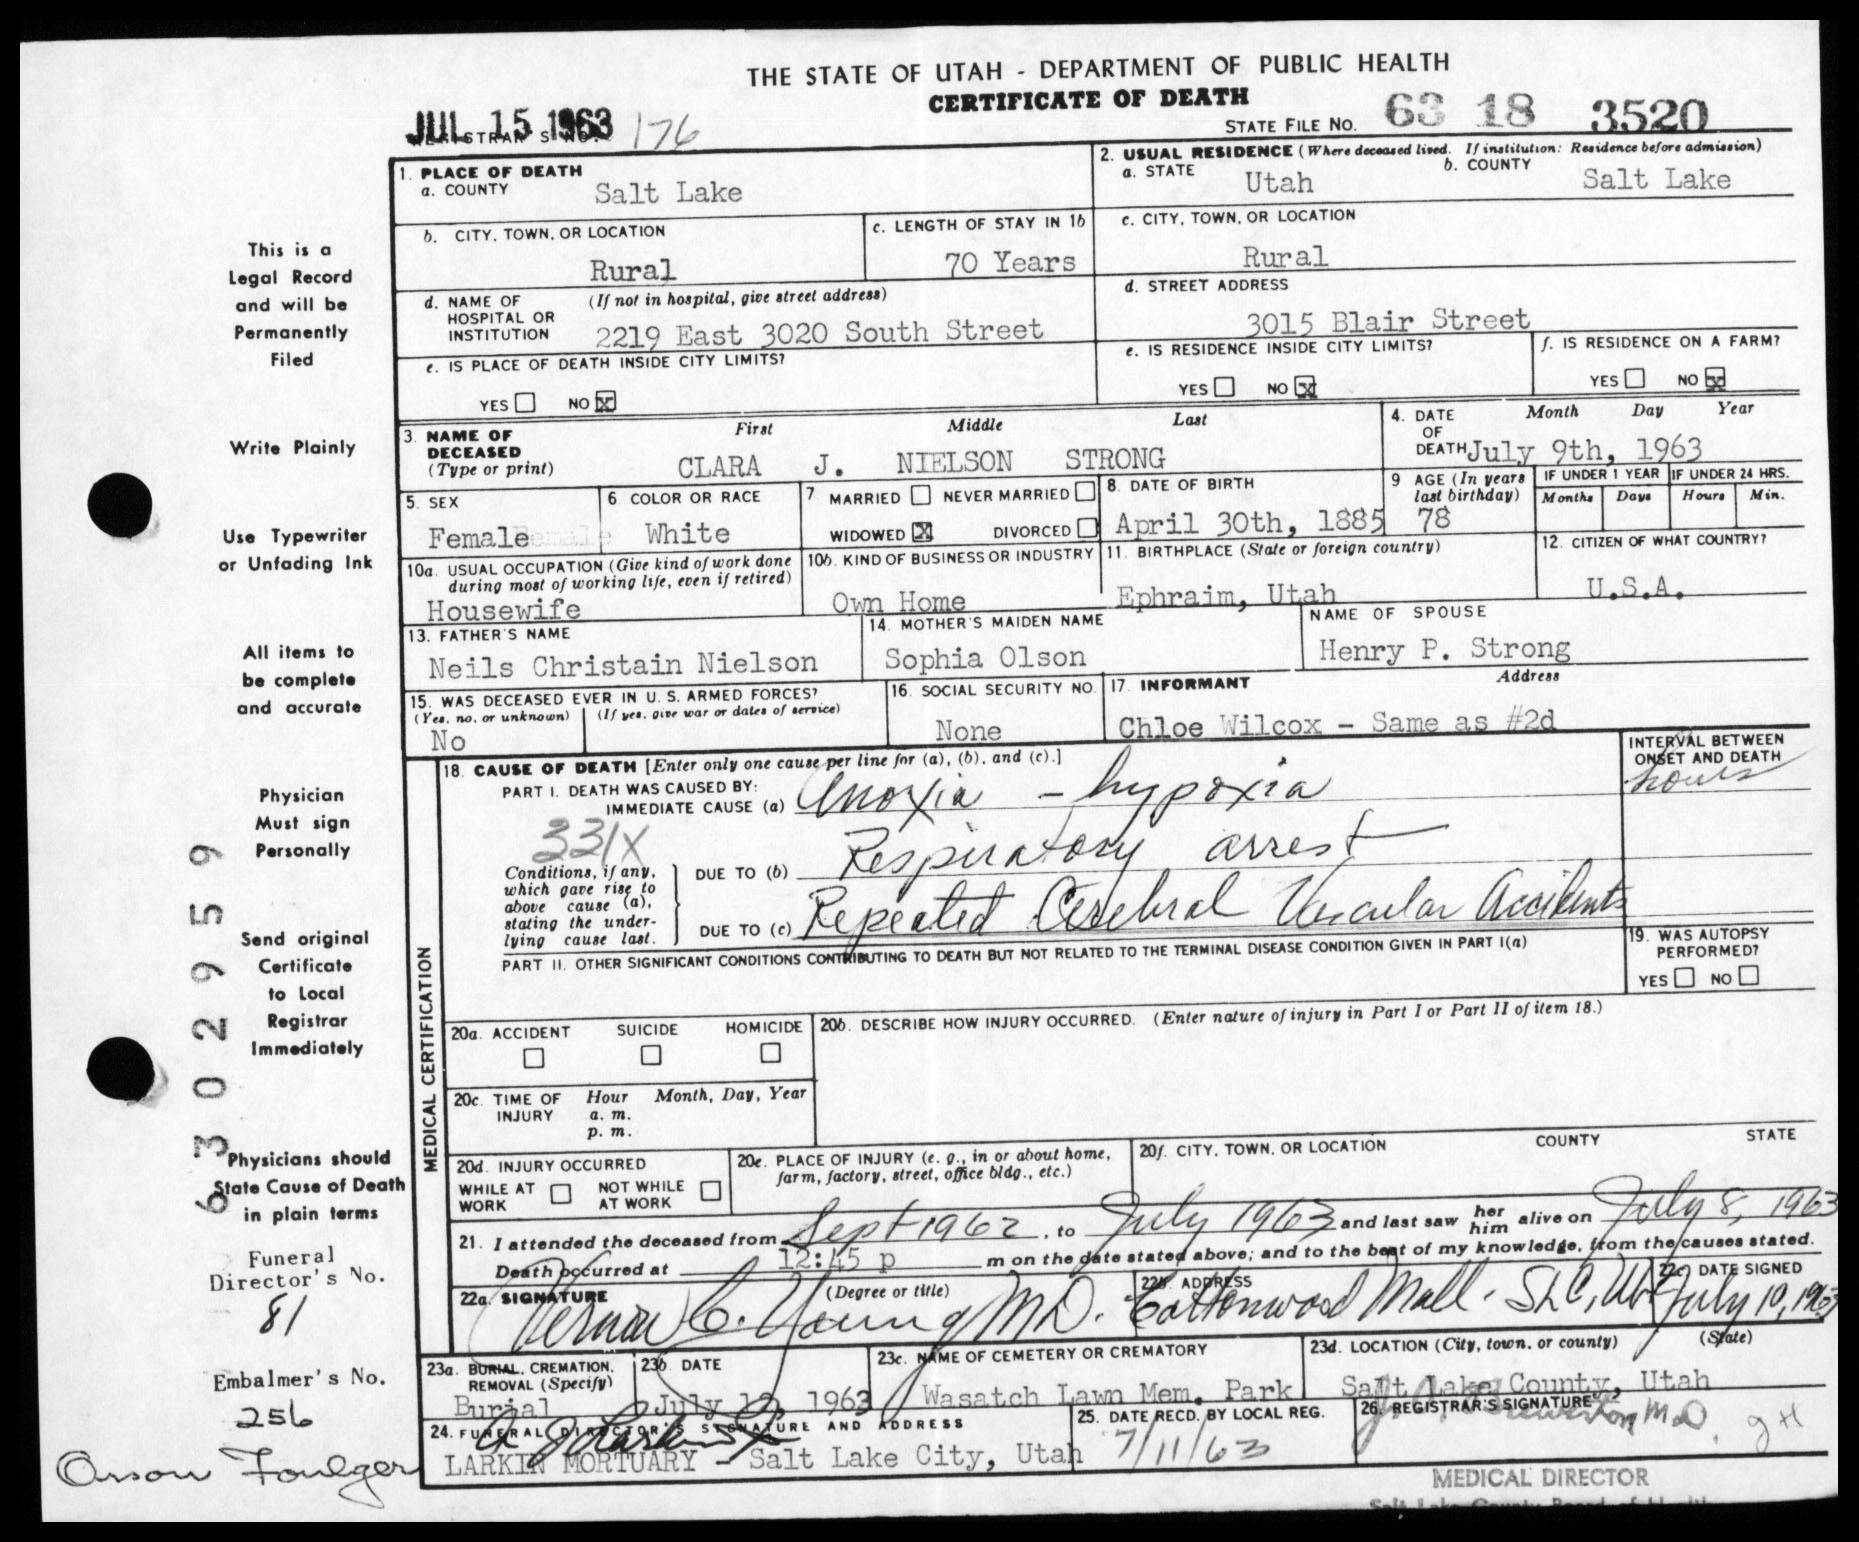 THE STATE OF UTAH - DEPARTMENT OF PUBLIC HEALTH
CERTIFICATE OF DEATH
JUL 15 1963
REGISTRAR'S NO. 176
STATE FILE NO. 63 18 3520
This is a
Legal Record
and will be
Permanently
Filed
Write Plainly
Use Typewriter
or Unfading Ink
All items to
be complete
and accurate
Physician
Must sign
Personally
Send original
Certificate
to Local
Registrar
Immediately
Physicians should
State Cause of Death
in plain terms
Funeral
Director's No.
81
Embalmer's No.
256
Orson Foulger
6302959
1. PLACE OF DEATH
a. COUNTY Salt Lake
2. USUAL RESIDENCE (Where deceased lived. If institution: Residence before admission)
a. STATE Utah b. COUNTY Salt Lake
b. CITY, TOWN, OR LOCATION Rural
c. LENGTH OF STAY IN 1b 70 Years
c. CITY, TOWN, OR LOCATION Rural
d. NAME OF HOSPITAL OR INSTITUTION (If not in hospital, give street address)
2219 East 3020 South Street
d. STREET ADDRESS
3015 Blair Street
e. IS PLACE OF DEATH INSIDE CITY LIMITS?
YES NO X
e. IS RESIDENCE INSIDE CITY LIMITS?
YES NO X
f. IS RESIDENCE ON A FARM?
YES NO X
3. NAME OF DECEASED (Type or print) First Middle Last
CLARA J. NIELSON STRONG
4. DATE OF DEATH Month Day Year
July 9th, 1963
5. SEX Female
6. COLOR OR RACE White
7 MARRIED NEVER MARRIED
WIDOWED X DIVORCED
8. DATE OF BIRTH April 30th, 1885
9 AGE (In years last birthday) 78
IF UNDER 1 YEAR Months Days
IF UNDER 24 HRS. Hours Min.
10a. USUAL OCCUPATION (Give kind of work done during most of working life, even if retired)
Housewife
10b. KIND OF BUSINESS OR INDUSTRY
Own Home
11. BIRTHPLACE (State or foreign country)
Ephraim, Utah
12. CITIZEN OF WHAT COUNTRY?
U.S.A.
13. FATHER'S NAME
Neils Christain Nielson
14. MOTHER'S MAIDEN NAME
Sophia Olson
NAME OF SPOUSE
Henry P. Strong
15. WAS DECEASED EVER IN U. S. ARMED FORCES?
(Yes, no, or unknown) (If yes, give war or dates of service)
No
16. SOCIAL SECURITY NO.
None
17. INFORMANT Address
Chloe Wilcox - Same as #2d
MEDICAL CERTIFICATION
18. CAUSE OF DEATH [Enter only one cause per line for (a), (b), and (c).]
PART I. DEATH WAS CAUSED BY:
IMMEDIATE CAUSE (a) Anoxia - hypoxia
INTERVAL BETWEEN ONSET AND DEATH
hours
331X
Conditions, if any, which gave rise to above cause (a), stating the underlying cause last.
DUE TO (b) Respiratory arrest
DUE TO (c) Repeated Cerebral Vascular Accidents
PART II. OTHER SIGNIFICANT CONDITIONS CONTRIBUTING TO DEATH BUT NOT RELATED TO THE TERMINAL DISEASE CONDITION GIVEN IN PART I(a)
19. WAS AUTOPSY PERFORMED?
YES NO
20a. ACCIDENT SUICIDE HOMICIDE
20b. DESCRIBE HOW INJURY OCCURRED. (Enter nature of injury in Part I or Part II of item 18.)
20c. TIME OF INJURY Hour a. m. p. m. Month, Day, Year
20d. INJURY OCCURRED
WHILE AT WORK NOT WHILE AT WORK
20e. PLACE OF INJURY (e. g., in or about home, farm, factory, street, office bldg., etc.)
20f. CITY, TOWN, OR LOCATION COUNTY STATE
21. I attended the deceased from Sept 1962, to July 1963 and last saw her him alive on July 8, 1963
Death occurred at 12:45 p m on the date stated above; and to the best of my knowledge, from the causes stated.
22a. SIGNATURE (Degree or title)
Vernon C. Young MD.
22b. ADDRESS
Cottonwood Mall. SLC, Ut
22c. DATE SIGNED
July 10, 1963
23a. BURIAL, CREMATION, REMOVAL (Specify)
Burial
23b. DATE
July 12, 1963
23c. NAME OF CEMETERY OR CREMATORY
Wasatch Lawn Mem. Park
23d. LOCATION (City, town, or county) (State)
Salt Lake County, Utah
24. FUNERAL DIRECTOR'S SIGNATURE AND ADDRESS
LARKIN MORTUARY - Salt Lake City, Utah
25. DATE RECD. BY LOCAL REG.
7/11/63
26. REGISTRAR'S SIGNATURE
M.D. gH
MEDICAL DIRECTOR